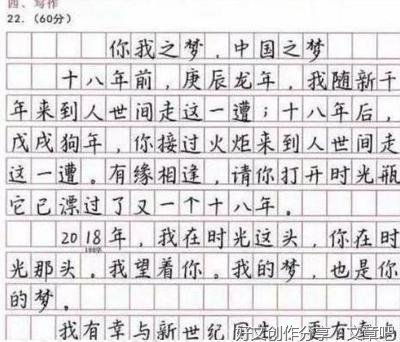 四、写作
22.（60分）
你我之梦，中国之梦
十八年前，庚辰龙年，我随新千
年来到人世间走这一遭；十八年后，
戊戌狗年，你接过火炬来到人世间走
这一遭。有缘相逢，请你打开时光瓶
它已漂过了又一个十八年。
2018年，我在时光这头，你在时
光那头。我望着你。我的梦，也是你
的梦。
我有幸与新世纪同生，更有幸与
好文创作分享